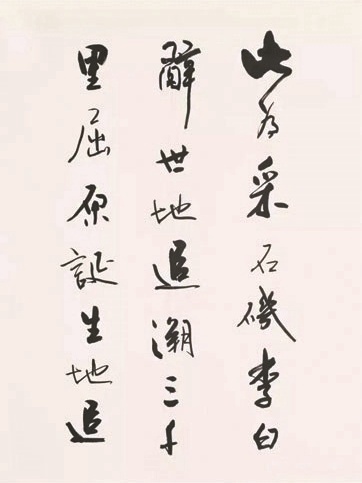 此为采石矶李白
辭世地追溯三千
里屈原誕生地追